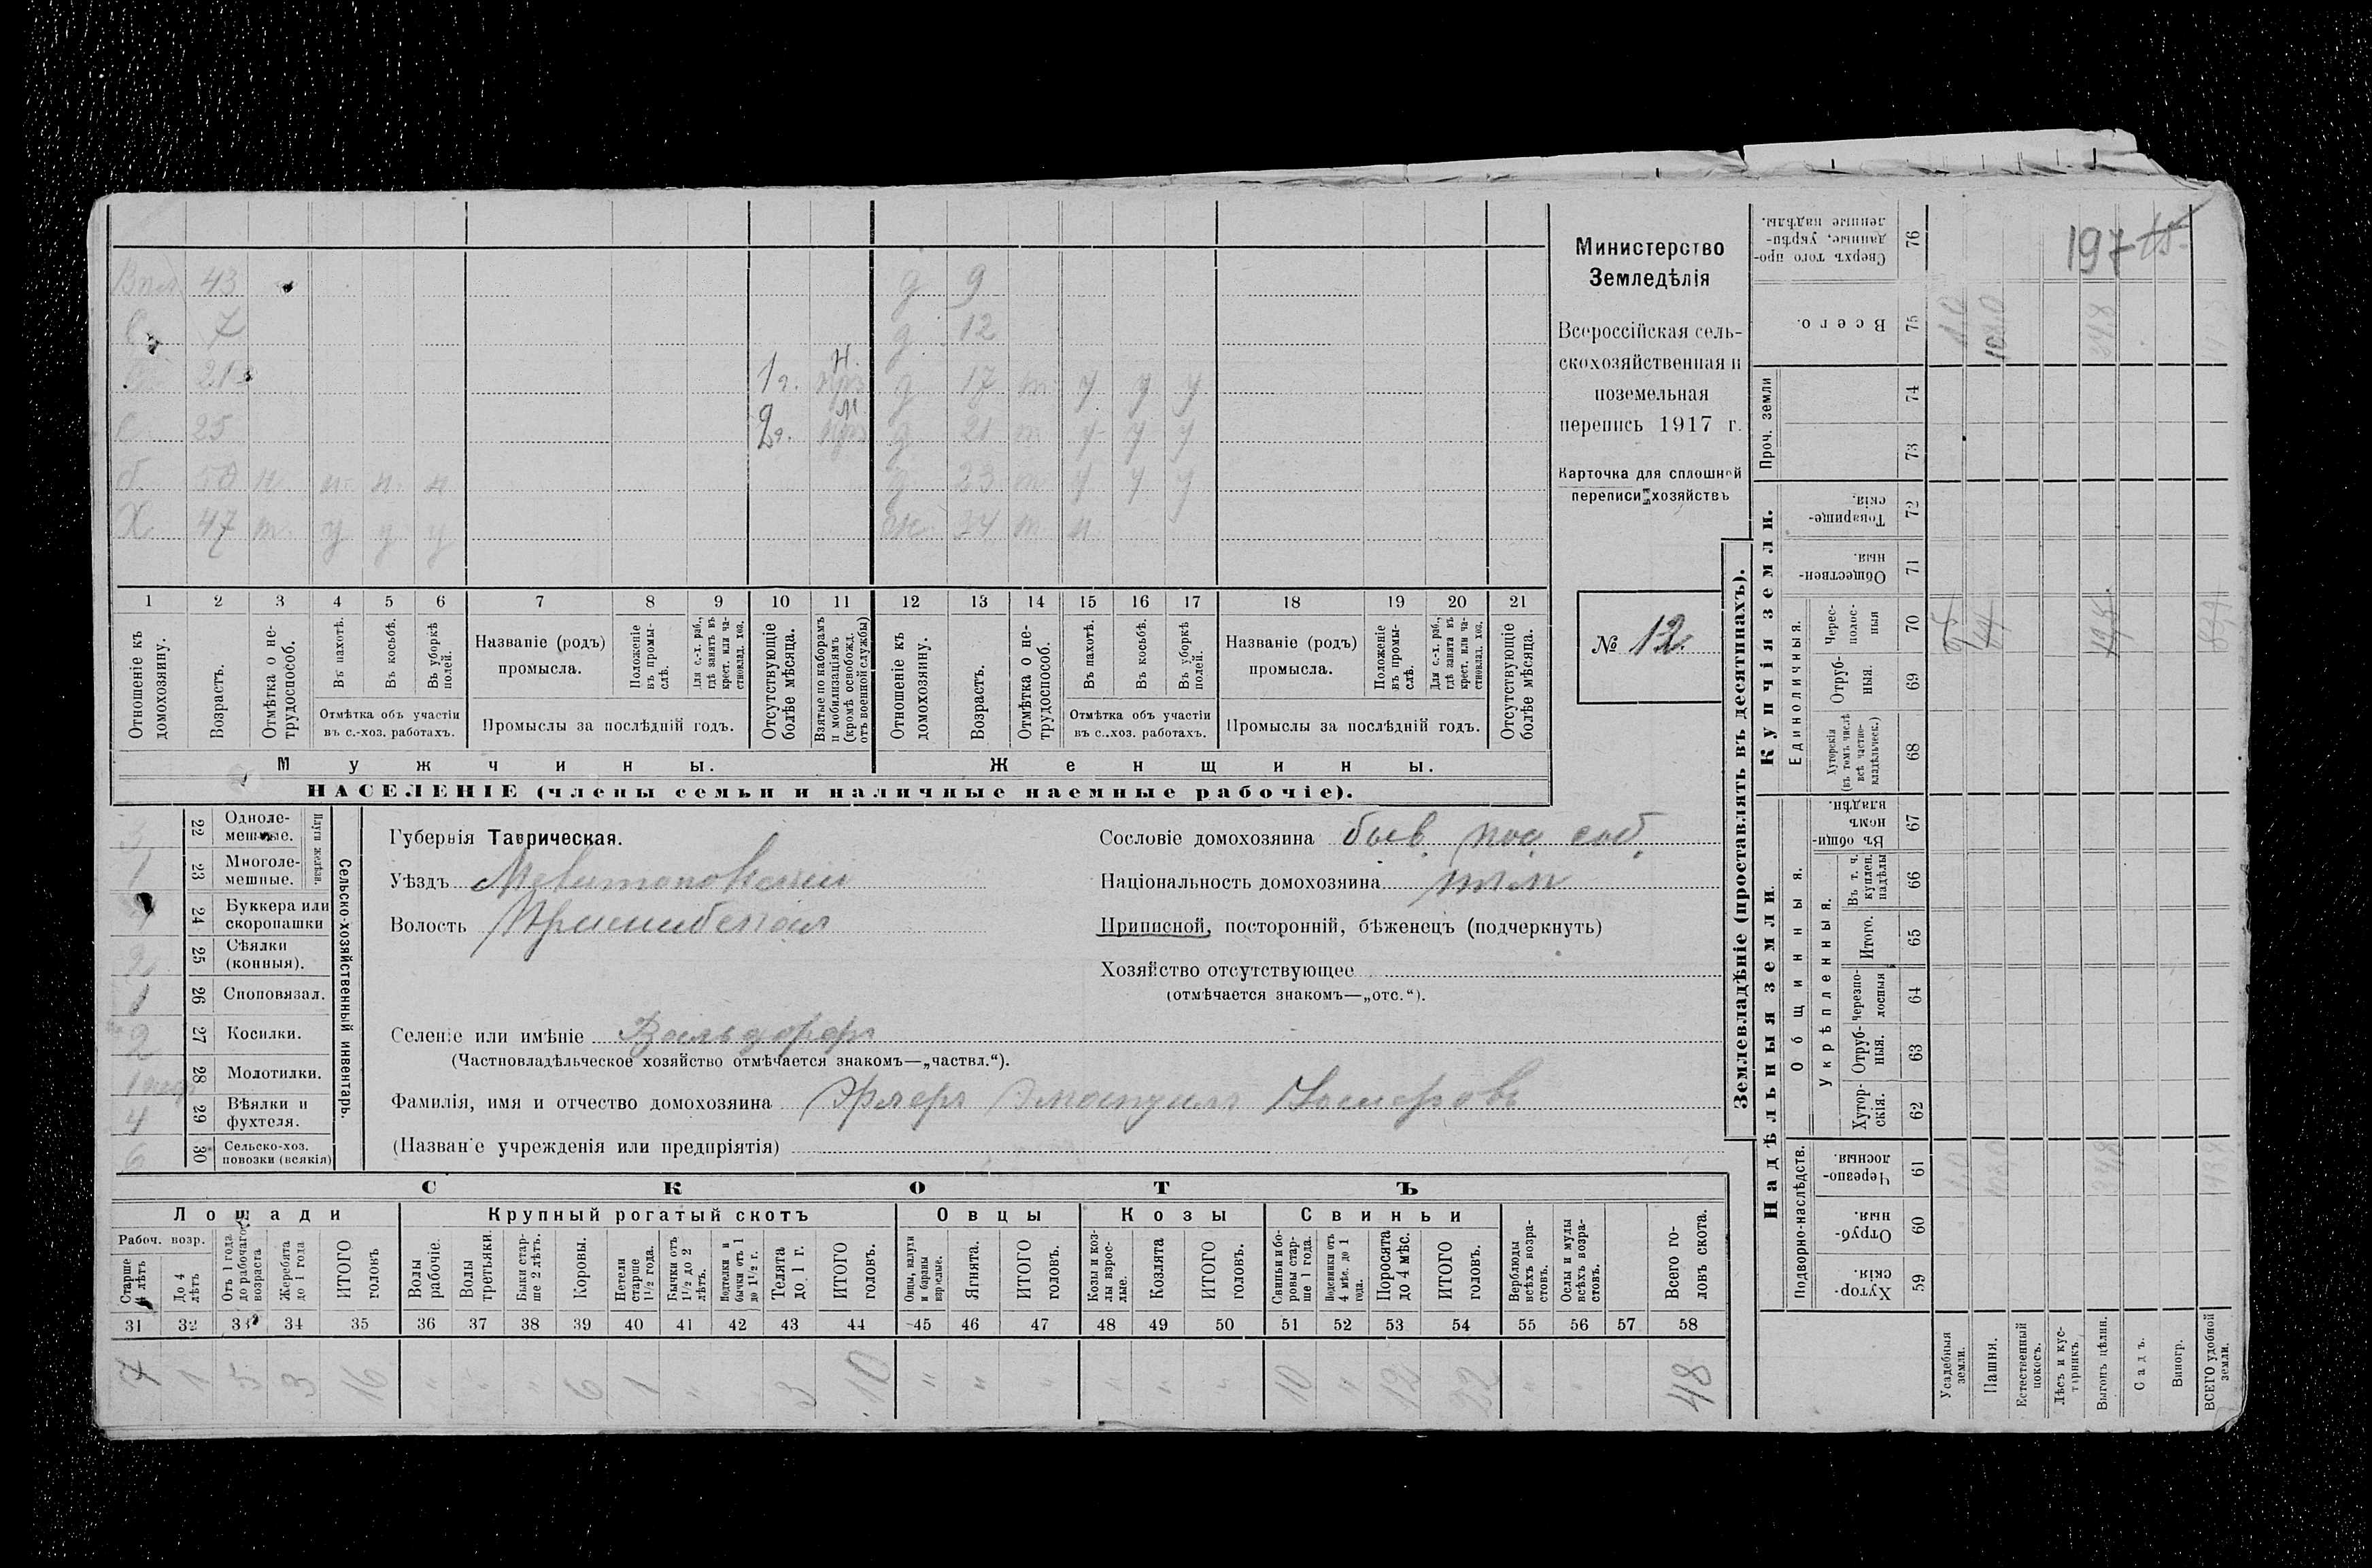 43 9
7 12
21 1 г. 17 т у у у
С 25 2 г. д 21 т у у у
б. н н н н д 23 т у у у
Х 47 т. у у у 34 т н
1 2 3 4 5 6 7 8 9 10 11 12 13 14 15 16 17 18 19 20 21
Отношеніе къ домохозяину.
Возрастъ.
Отмѣтка о не-
трудоспособ.
Въ пахотѣ.
Въ косьбѣ.
Въ уборкѣ полей.
Отмѣтка объ участіи
въ с.-хоз. работахъ.
Названіе (родъ)
промысла.
Положеніе въ промы-
слѣ.
Для с.-х. раб.,
гдѣ занятъ въ
крест. или ча-
стновлад. хоз.
Промыслы за послѣдній годъ.
Отсутствующіе
болѣе мѣсяца.
Взятые по наборамъ
и мобилизаціямъ
(кромѣ освобожд.
отъ военной службы)
Отношеніе къ
домохозяину.
Возрастъ.
Отмѣтка о не-
трудоспособ.
Въ пахотѣ.
Въ косьбѣ.
Въ уборкѣ
полей.
Отмѣтка объ участіи
въ с.-хоз. работахъ.
Названіе (родъ)
промысла.
Положеніе
въ промы-
слѣ.
Для с.-х. раб.,
гдѣ занята въ
крест. или ча-
стновлад. хоз.
Промыслы за послѣдній годъ.
Отсутствующіе
болѣе мѣсяца.
Мужчины.
Женщины.
НАСЕЛЕНІЕ (члены семьи и наличные наемные рабочіе).
Министерство
Земледѣлія
Всероссійская сель-
скохозяйственная и
поземельная
перепись 1917 г.
Карточка для сплошной
переписи хозяйствъ
№ 12.
3 22 Одноле-
мешные.
1 23 Многоле-
мешные.
Плуги желѣзн.
24 Буккера или
скоропашки
2 25 Сѣялки
(конныя).
1 26 Сноповязал.
2 27 Косилки.
1 28 Молотилки.
4 29 Вѣялки и
фухтеля.
6 30 Сельско-хоз.
повозки (всякія)
Сельско-хозяйственный инвентарь.
Губернія Таврическая.
Уѣздъ Мелитопольскій
Волость Пришибская
Селеніе или имѣніе Вальдорфъ
(Частновладѣльческое хозяйство отмѣчается знакомъ—„частвл.“).
Фамилія, имя и отчество домохозяина
(Названіе учрежденія или предпріятія)
Сословіе домохозяина быв. пос. соб.
Національность домохозяина
Приписной, посторонній, бѣженецъ (подчеркнуть)
Хозяйство отсутствующее
(отмѣчается знакомъ—„отс.“).
СКОТЪ
Лошади
Рабоч. возр.
Старше
4 лѣтъ
До 4
лѣтъ
Отъ 1 года
до рабочаго
возраста
Жеребята
до 1 года
ИТОГО
головъ
Крупный рогатый скотъ
Волы
рабочіе.
Волы
третьяки.
Быки стар-
ше 2 лѣтъ.
Коровы.
Нетели
старше
1½ года.
Бычки отъ
1½ до 2
лѣтъ.
Нетелки и
бычки отъ 1
до 1½ г.
Телята
до 1 г.
ИТОГО
головъ.
Овцы
Овцы, валухи
и бараны
взрослые.
Ягнята.
ИТОГО
головъ.
Козы
Козы и коз-
лы взрос-
лые.
Козлята
ИТОГО
головъ.
Свиньи
Свиньи и бо-
ровы стар-
ше 1 года.
Подсвинки отъ
4 мѣс. до 1
года.
Поросята
до 4 мѣс.
ИТОГО
головъ.
Верблюды
всѣхъ возра-
стовъ.
Ослы и мулы
всѣхъ возра-
стовъ.
Всего го-
ловъ скота.
31 32 33 34 35 36 37 38 39 40 41 42 43 44 45 46 47 48 49 50 51 52 53 54 55 56 57 58
7 1 5 3 16 " " " 6 1 " 3 10 " " " " " " 10 " 12 22 " 48
Землевладѣніе (проставлять въ десятинахъ).
197
Сверхъ того про-
данные, укрѣп-
ленные надѣлы. 76
Всего. 75
1.0 108.0 34.8
Проч. земли
74
73
Купчія земли.
Товарище-
скія. 72
Обществен-
ныя. 71
Единоличныя.
Черес-
полос-
ныя 70
Отруб-
ныя. 69
Хуторскія
(въ томъ числѣ
всѣ частно-
владѣльческ.) 68
Надѣльныя земли.
Общинныя.
Въ общин-
номъ
владѣн. 67
Укрѣпленныя.
Въ т. ч.
куплен.
надѣлы 66
Итого. 65
Черезпо-
лосныя 64
Отруб-
ныя. 63
Хутор-
скія. 62
Подворно-наслѣдств.
Черезпо-
лосныя. 61
Отруб-
ныя. 60
Хутор-
скія. 59
Усадебныя
земли.
Пашня.
Естественный
покосъ.
Лѣсъ и кус-
тарникъ
Выгонъ цѣлин.
Садъ.
Виногр.
ВСЕГО удобной
земли.